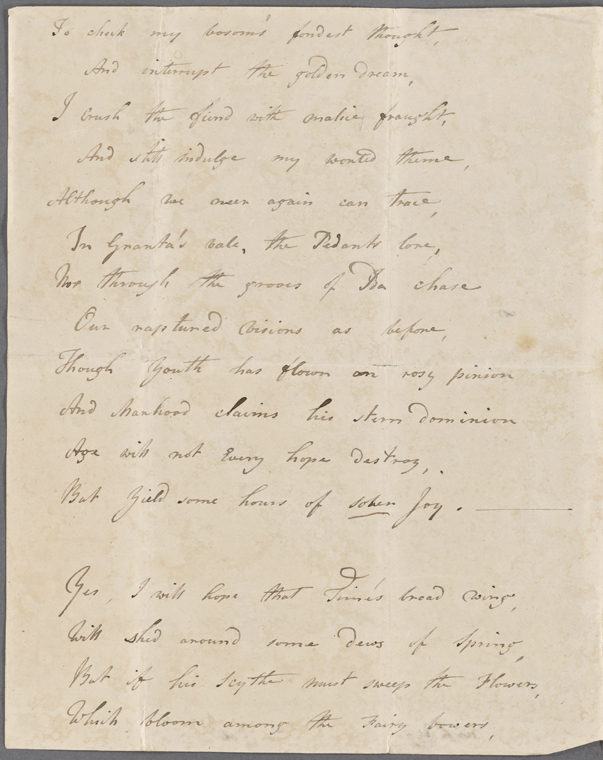 To check my bosom's fondest thought,
And interrupt the golden dream,
I crush the fiend with malice fraught,
And still indulge my wonted theme,
Although we neer again can trace,
In Granta's vale, the Pedants lore,
Nor through the groves of Ida chase
Our raptured visions as before,
Though Youth has flown on rosy pinion
And Manhood claims his stern dominion
Age will not Every hope destroy,
But Yield some hours of sober Joy.
Yes, I will hope that Time's broad wing,
Will shed around some dews of Spring,
But if his Scythe must sweep the Flowers,
Which bloom among the Fairy bowers,